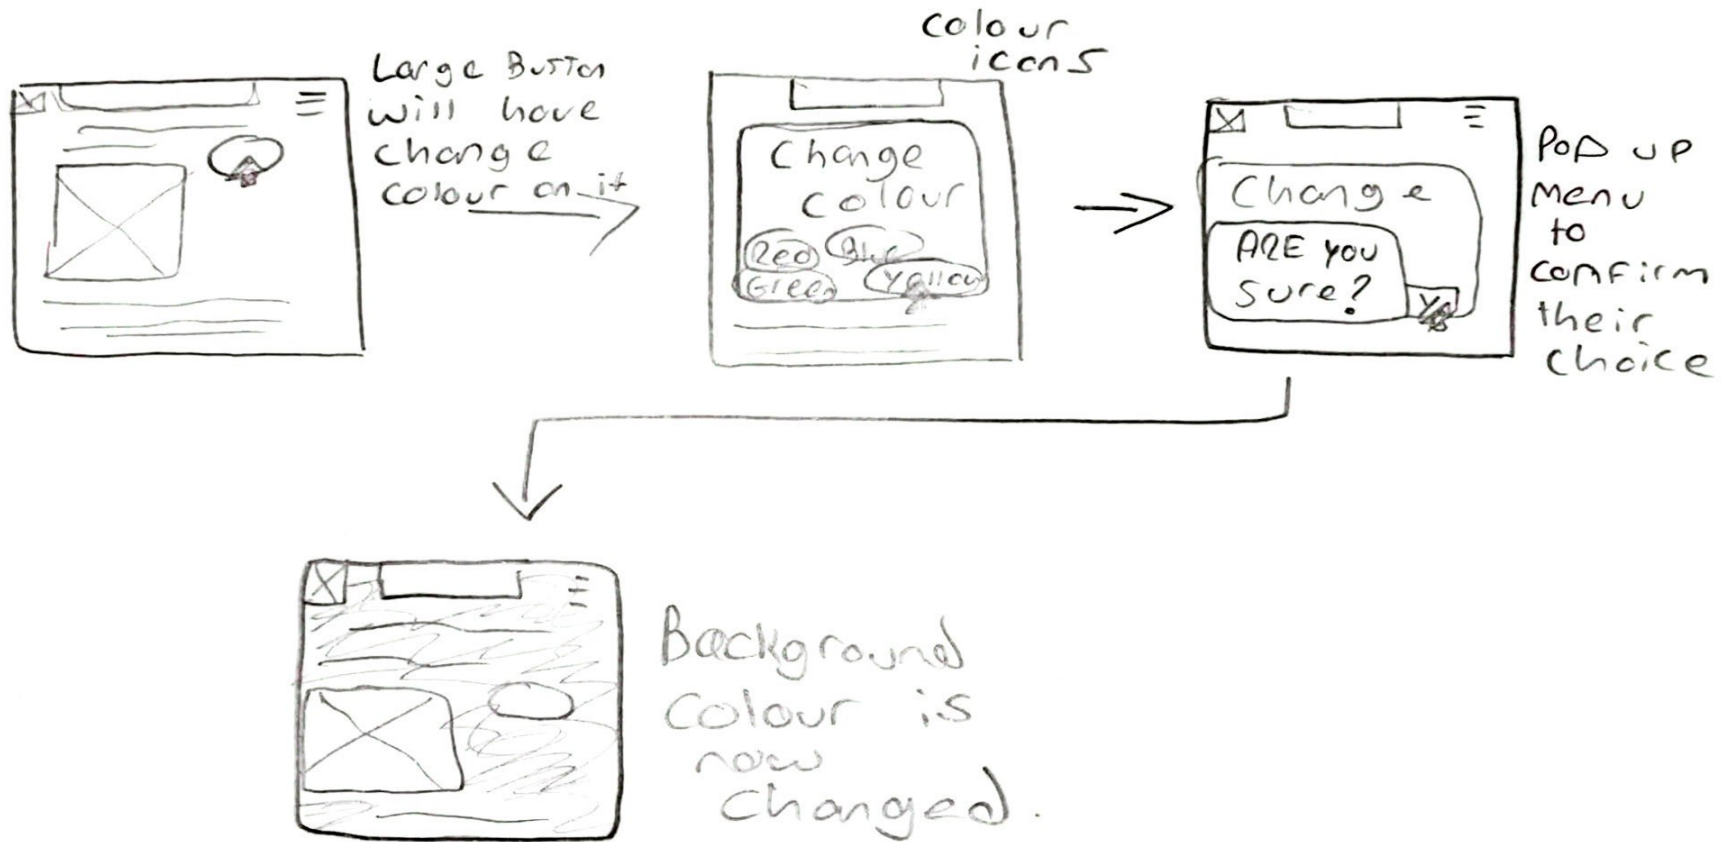 Large Button
will have
change
colour on it
colour
icons
Change
colour
Red Blue
Green Yellow
Change
ARE you
sure?
Pop up
menu
to
confirm
their
choice
Background
colour is
now
changed.